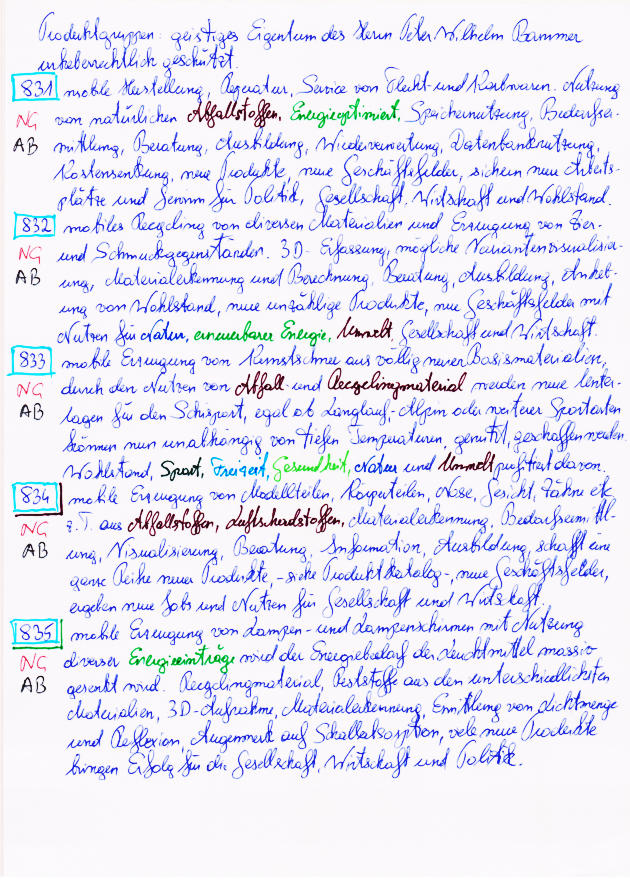 Produktgruppen: geistiges Eigentum des Herrn Peter Wilhelm Bammer
urheberrechtlich geschützt.
831 mobile Herstellung, Reparatur, Service von Flecht- und Korbwaren. Nutzung
NG von natürlichen Abfallstoffen, Energieoptimiert, Speichernutzung, Bedarfser-
AB mittlung, Beratung, Ausbildung, Wiederverwertung, Datenbanknutzung,
Kostensenkung, neue Produkte, neue Geschäftsfelder, sichern neue Arbeits-
plätze und Gewinn für Politik, Gesellschaft, Wirtschaft und Wohlstand.
832 mobiles Recycling von diversen Materialien und Erzeugung von Zier-
NG und Schmuckgegenständen. 3D-Erfassung, mögliche Variantenvisualisier-
AB ung, Materialerkennung und Berechnung, Beratung, Ausbildung, Anheb-
ung von Wohlstand, neue unzählige Produkte, neue Geschäftsfelder mit
Nutzen für Natur, erneuerbarer Energie, Umwelt, Gesellschaft und Wirtschaft.
833 mobile Erzeugung von Kunstschnee aus völlig neuen Basismaterialien,
NG durch den Nutzen von Abfall- und Recyclingmaterial werden neue Unter-
AB lagen für den Schisport, egal ob Langlauf-, Alpin oder weiterer Sportarten
können nun unabhängig von tiefen Temperaturen, genützt, geschaffen werden.
Wohlstand, Sport, Freizeit, Gesundheit, Natur und Umwelt profitiert davon.
834 mobile Erzeugung von Modellteilen, Körperteilen, Nase, Gesicht, Zähne etc.
NG z.T. aus Abfallstoffen, Luftschadstoffen, Materialerkennung, Bedarfsermittl-
AB ung, Visualisierung, Beratung, Information, Ausbildung, schafft eine
ganze Reihe neuer Produkte, -siehe Produktkatalog-, neue Geschäftsfelder,
ergeben neue Jobs und Nutzen für Gesellschaft und Wirtschaft.
835 mobile Erzeugung von Lampen- und Lampenschirmen mit Nutzung
NG diverser Energieeinträge wird der Energiebedarf der Leuchtmittel massiv
AB gesenkt wird. Recyclingmaterial, Reststoffe aus den unterschiedlichsten
Materialien, 3D-Aufnahme, Materialerkennung, Ermittlung von Lichtmenge
und Reflexion, Augenmerk auf Schallabsorption, viele neue Produkte
bringen Erfolg für die Gesellschaft, Wirtschaft und Politik.